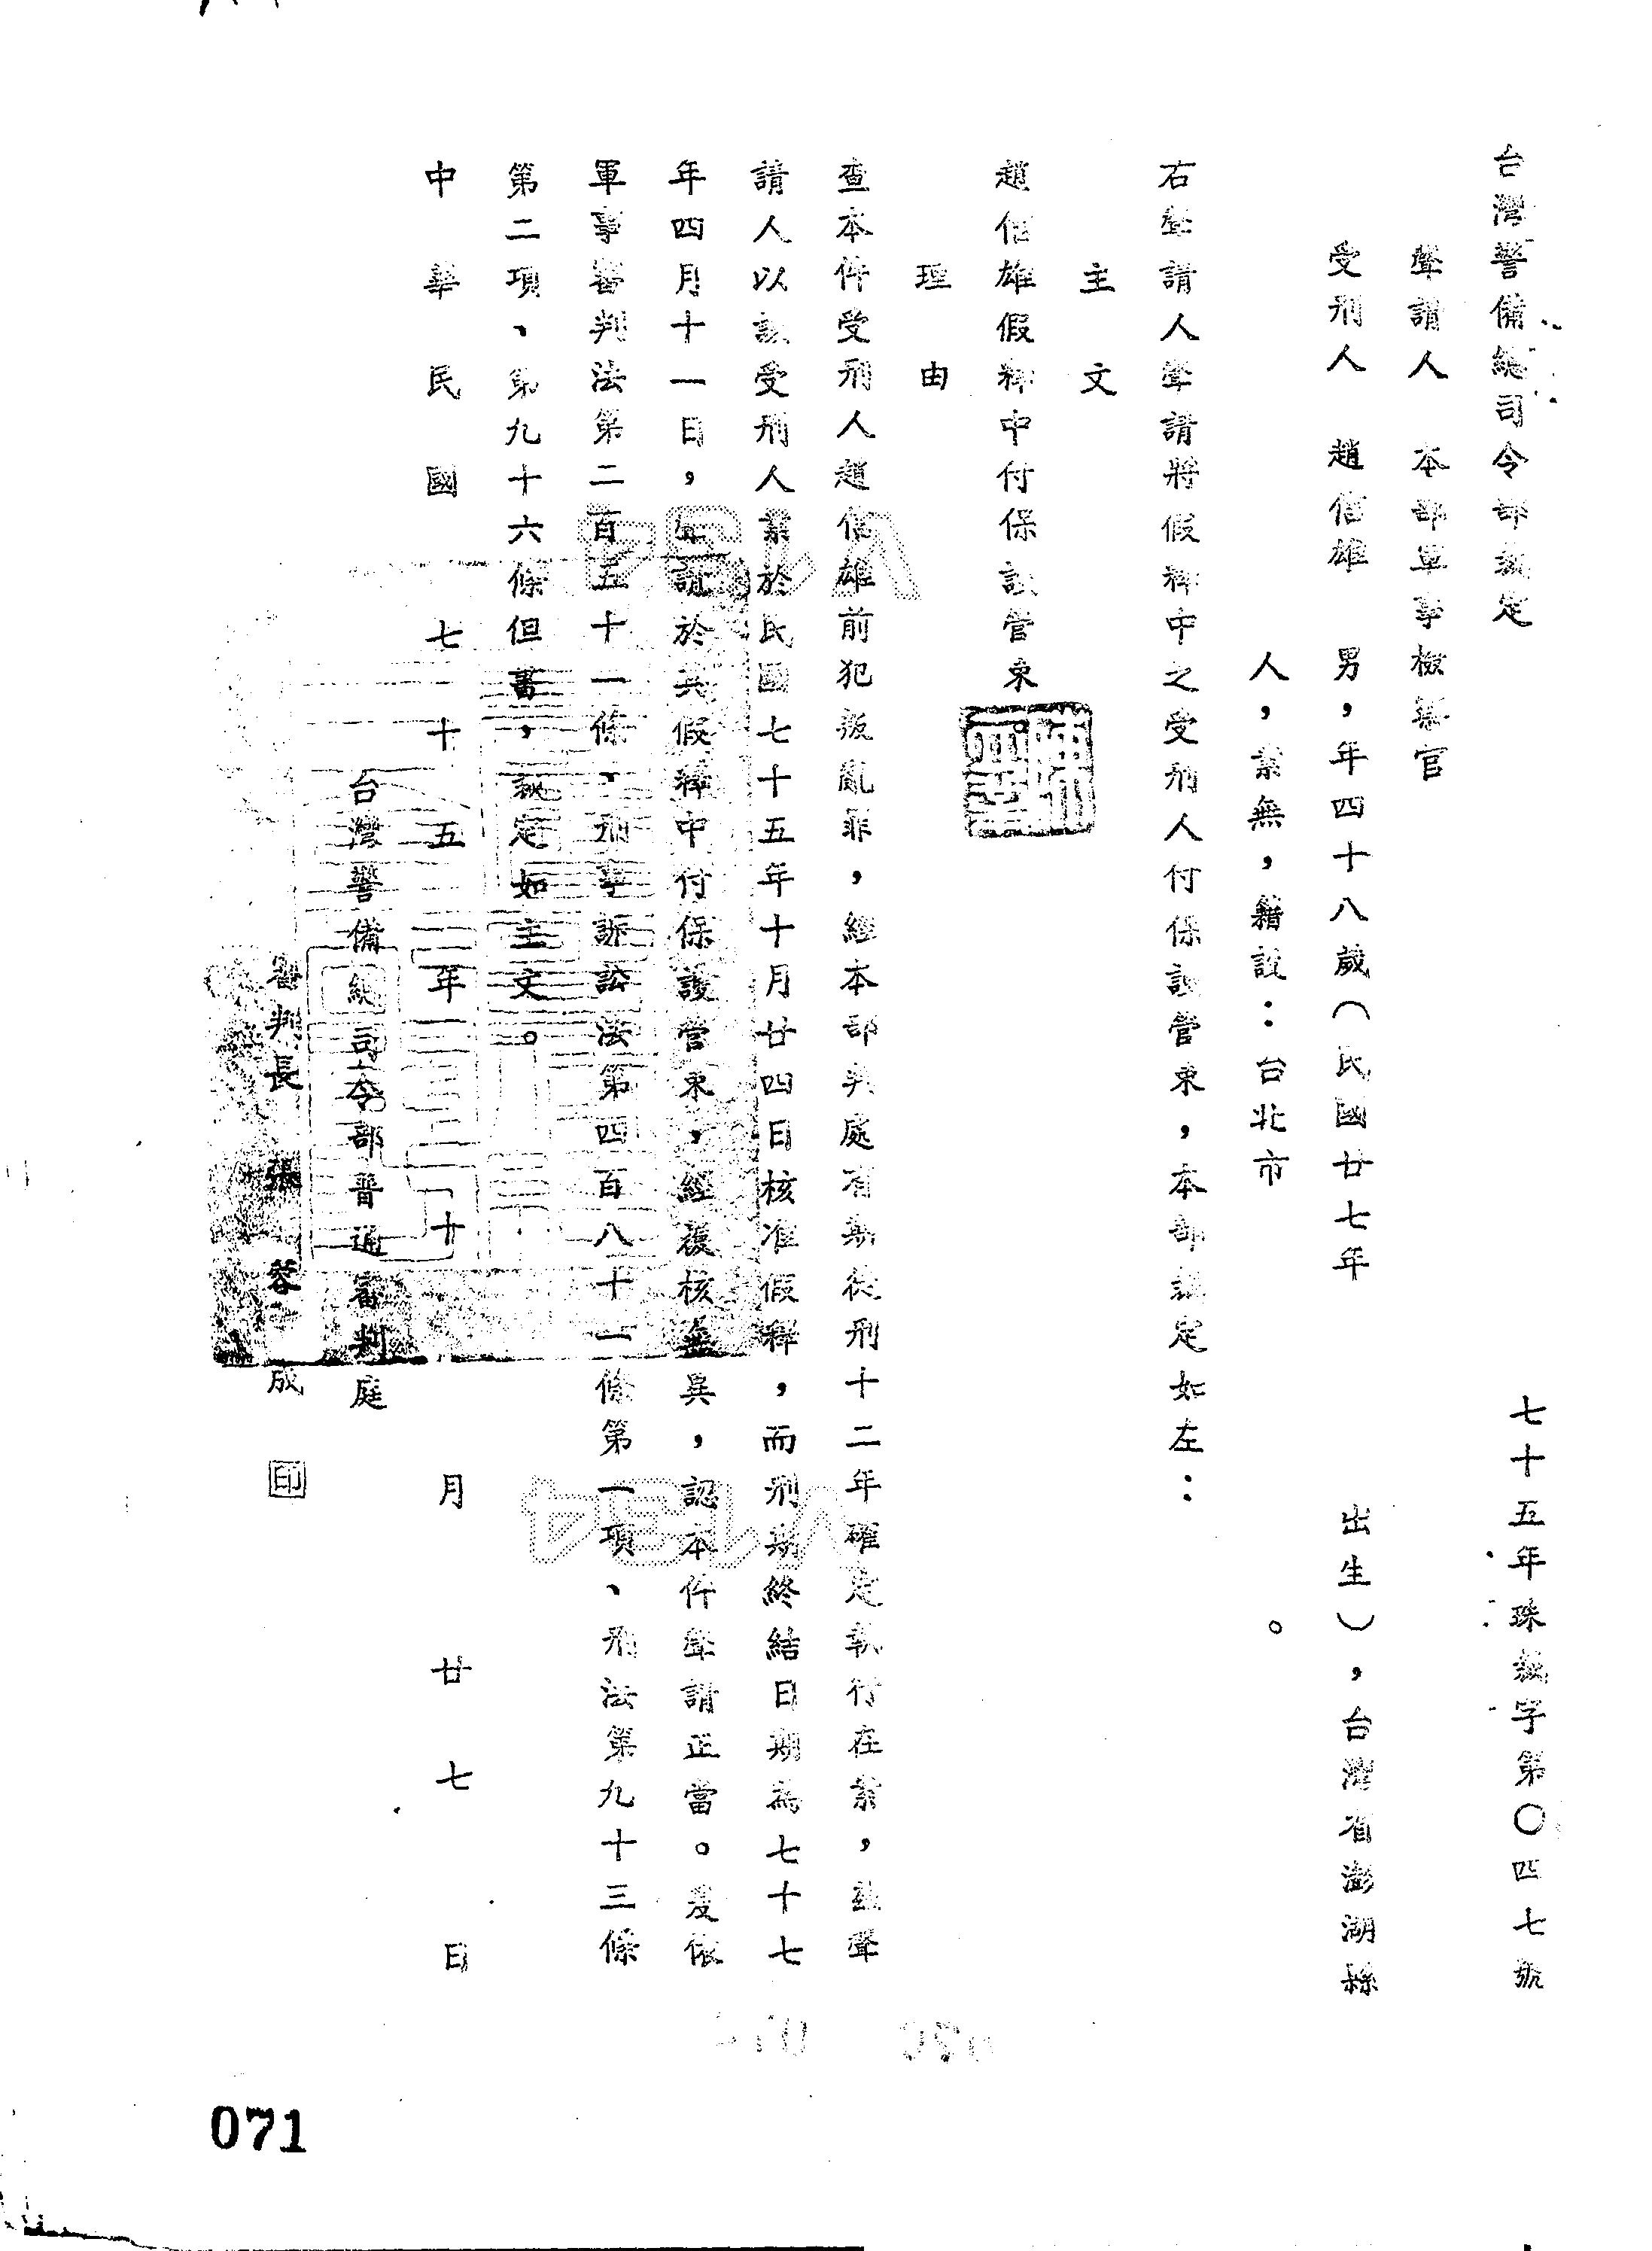 台灣警備總司令部裁定　七十五年珠裁字第〇四七號
聲請人　本部軍事檢察官
受刑人　趙信雄　男，年四十八歲（民國廿七年　出生），台灣省澎湖縣
人，業無，籍設：台北市　。
右聲請人聲請將假釋中之受刑人付保護管束，本部裁定如左：
主文
趙信雄假釋中付保護管束。
理由
查本件受刑人趙信雄前犯叛亂罪，經本部判處有期徒刑十二年確定執行在案，茲聲
請人以該受刑人業於民國七十五年十月廿四日核准假釋，而刑期終結日期為七十七
年四月十一日，聲請於其假釋中付保護管束，經復核無異，認本件聲請正當。爰依
軍事審判法第二百五十一條、刑事訴訟法第四百八十一條第一項、刑法第九十三條
第二項、第九十六條但書，裁定如主文。
中華民國七十五年十月廿七日
台灣警備總司令部普通審判庭
審判長　張蓉成　印
V134
V134
071